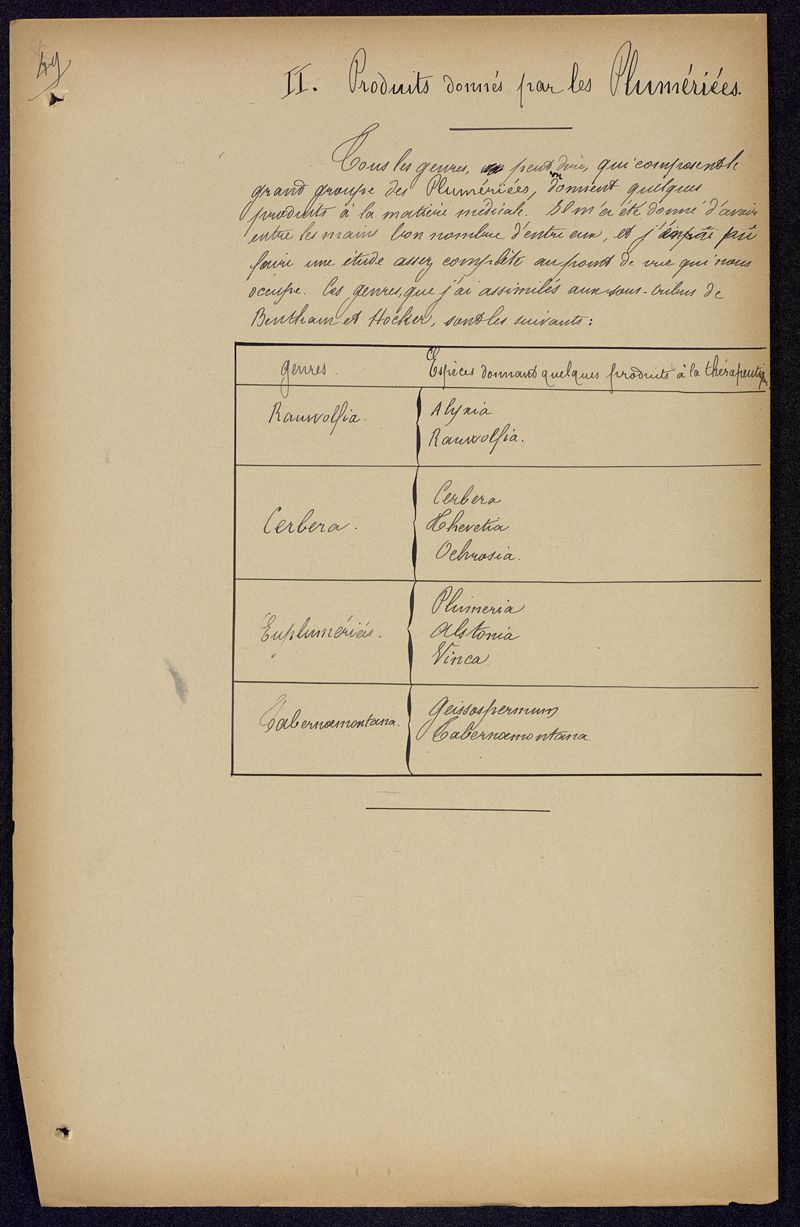 49
II. Produits donnés par les Plumériées.
Tous les genres, peut dire, qui composent le
grand groupe des Plumériées, donnent quelques
produits à la matière médicale. Il m'a été donné d'avoir
entre les mains bon nombre d'entre eux, et j'en pu
faire une étude assez complète au point de vue qui nous
occupe. Ces genres, que j'ai assimilés aux sous-tribus de
Bentham et Hocker, sont les suivants :
Genres. Espèces donnant quelques produits à la thérapeutiq
Rauwolfia. Alyxia
Rauwolfia.
Cerbera
Cerbera. Thevetia
Ochrosia.
Plumeria
Euplumériées. Alstonia
Vinca
Geissospermum
Tabernæmontana. Tabernæmontana.